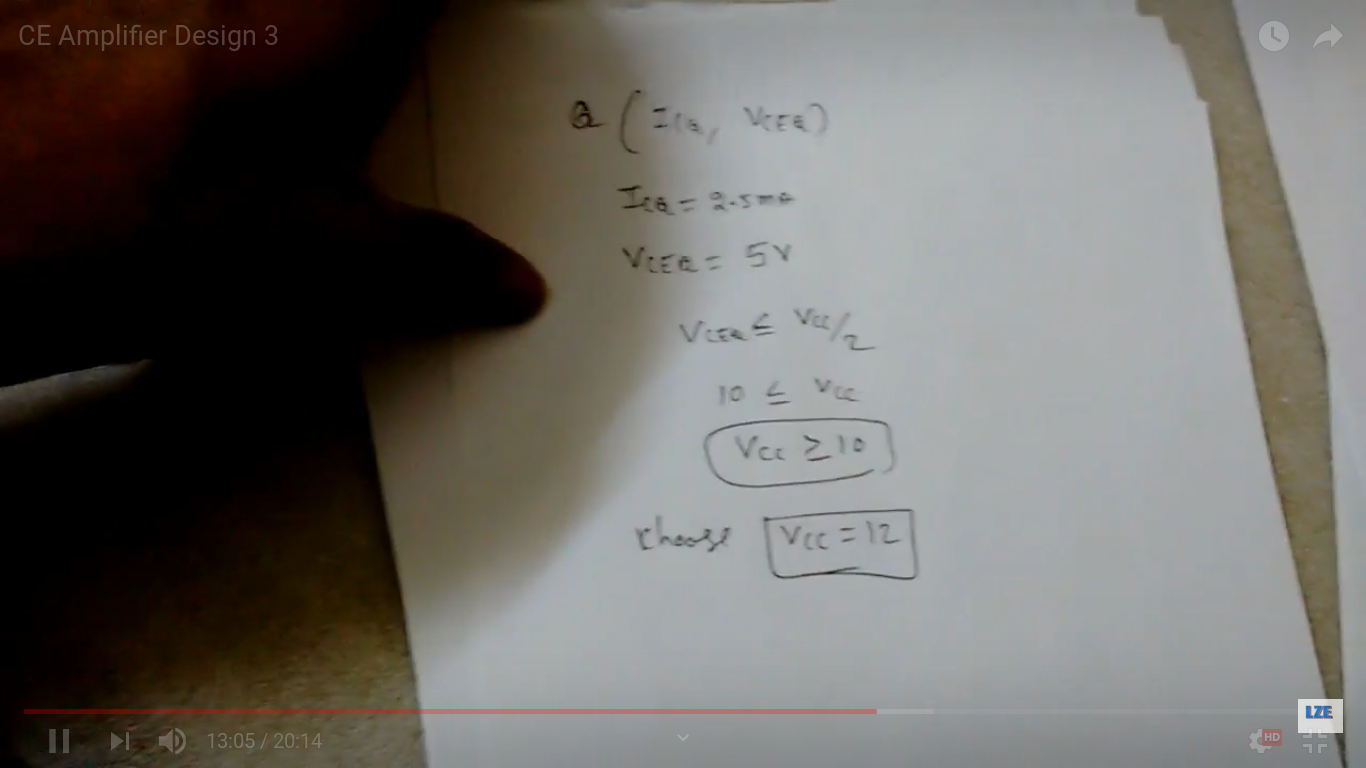 CE Amplifier Design 3
Q (ICQ, VCEQ)
ICQ = 2.5mA
VCEQ = 5V
VCEQ ≤ VCC/2
10 ≤ VCC
VCC ≥ 10
choose VCC = 12
LZE
13:05 / 20:14
HD